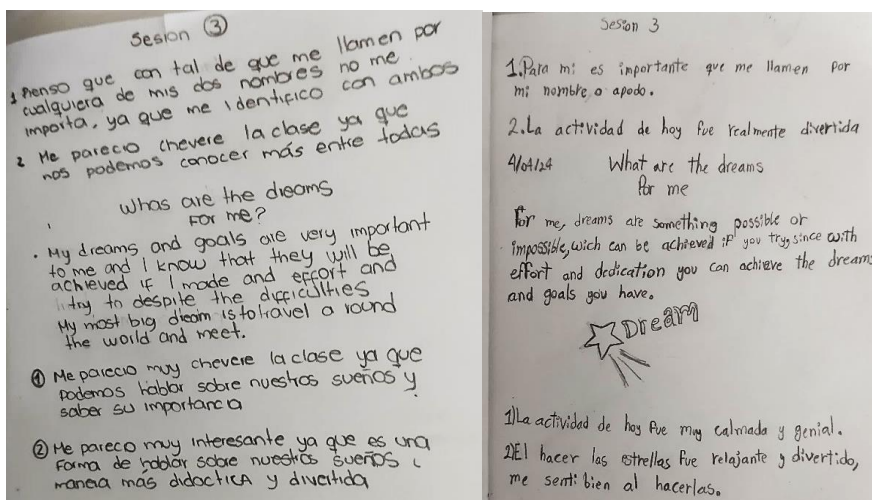 Sesion ③
1 Pienso que con tal de que me llamen por
cualquiera de mis dos nombres no me
importa, ya que me identifico con ambos
2 Me parecio chevere la clase ya que
nos podemos conocer más entre todas
Whas are the dreams
For me?
• My dreams and goals are very important
to me and I know that they will be
achieved if I made and effort and
try to despite the difficulties
My most big dream is to travel a round
the world and meet.
① Me parecio muy chevere la clase ya que
podemos hablar sobre nuestros sueños y
saber su importancia
② Me pareco muy interesante ya que es una
forma de hablar sobre nuestros sueños
manera mas didactica y divertida
Sesion 3
1. Para mi es importante que me llamen por
mi nombre o apodo.
2. La actividad de hoy fue realmente divertida
4/04/24 What are the dreams
for me
For me, dreams are something possible or
impossible, wich can be achieved if you try, since with
effort and dedication you can achieve the dreams
and goals you have.
Dream
1) La actividad de hoy fue muy calmada y genial.
2) El hacer las estrellas fue relajante y divertido,
me senti bien al hacerlas.